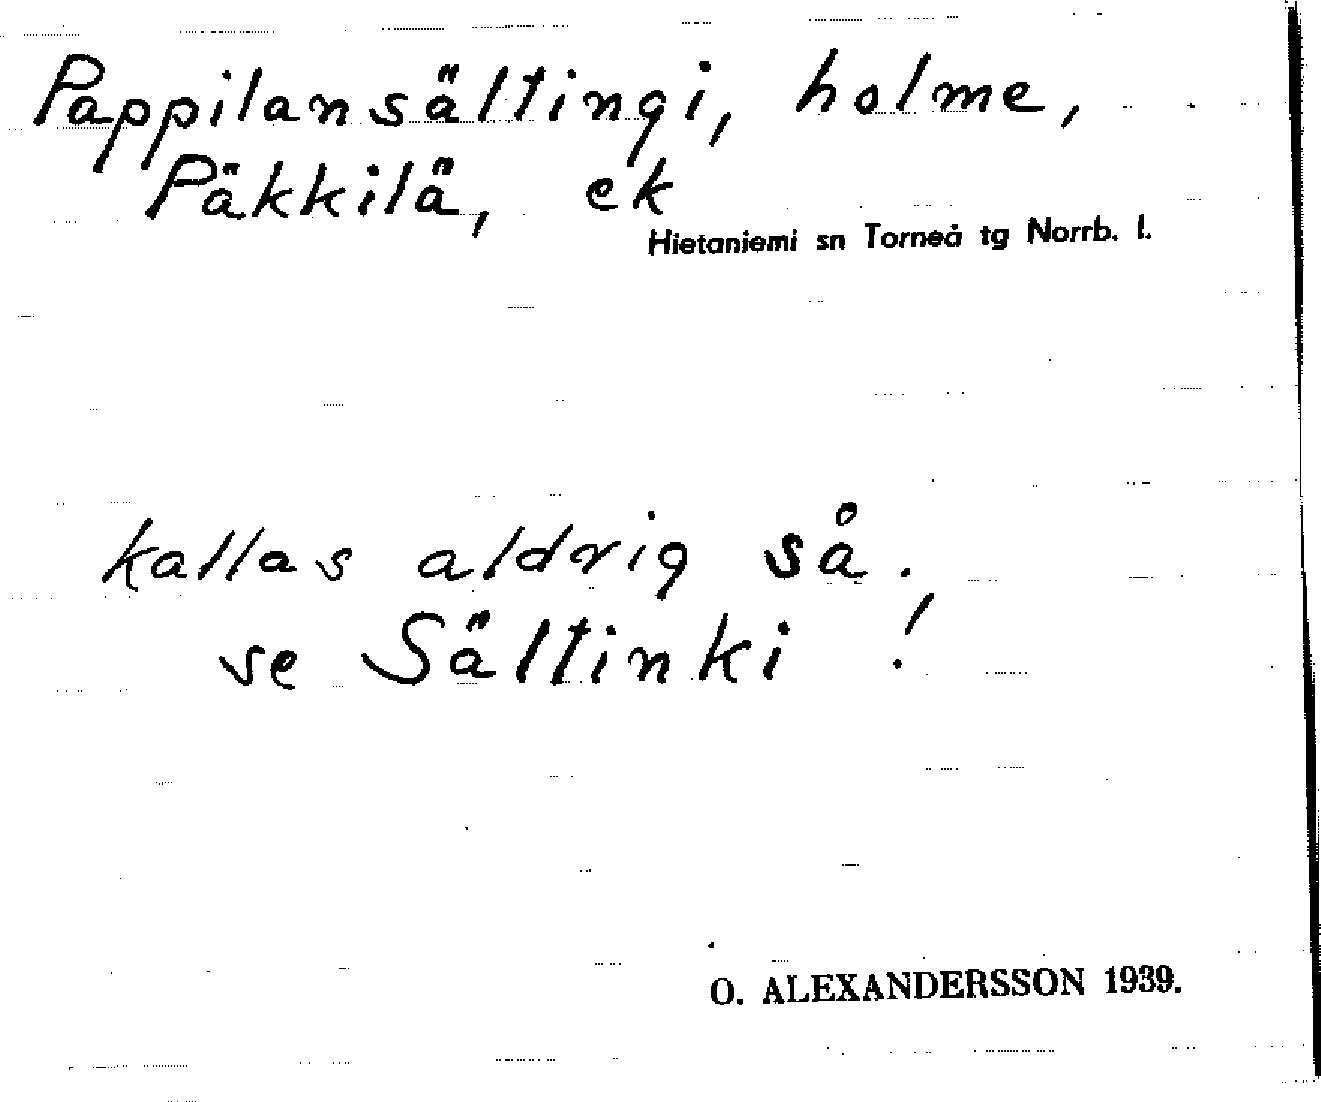 Pappilansältingi, holme,
Päkkilä, ek
Hietaniemi sn Torneå tg Norrb. l.
kallas aldrig så.
se Sältinki !
O. ALEXANDERSSON 1939.